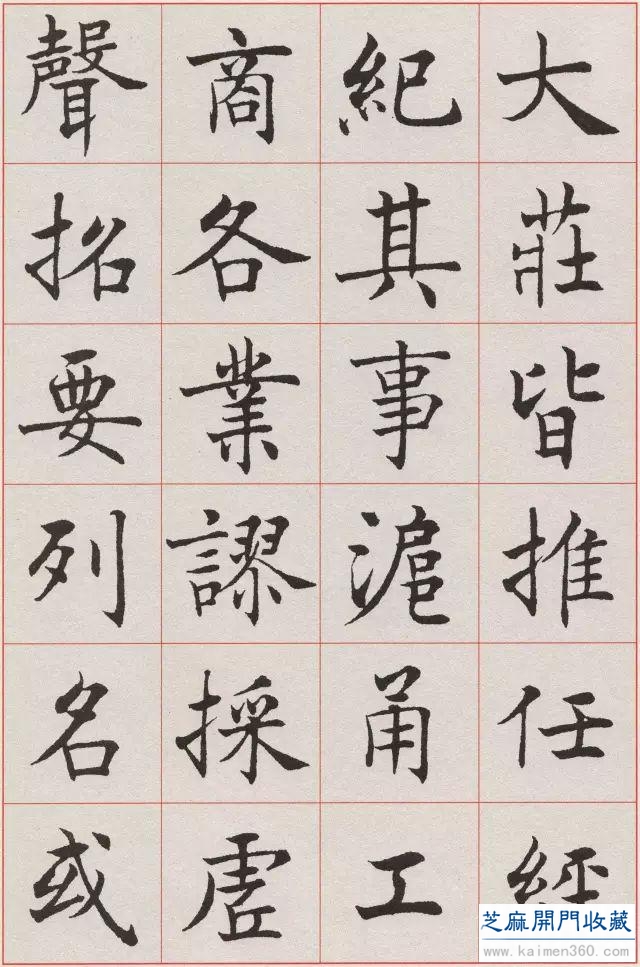 大莊皆推任經
紀其事滬甬工
商各業謬採虛
聲招要列名或
芝麻開門收藏
www.kaimen360.com